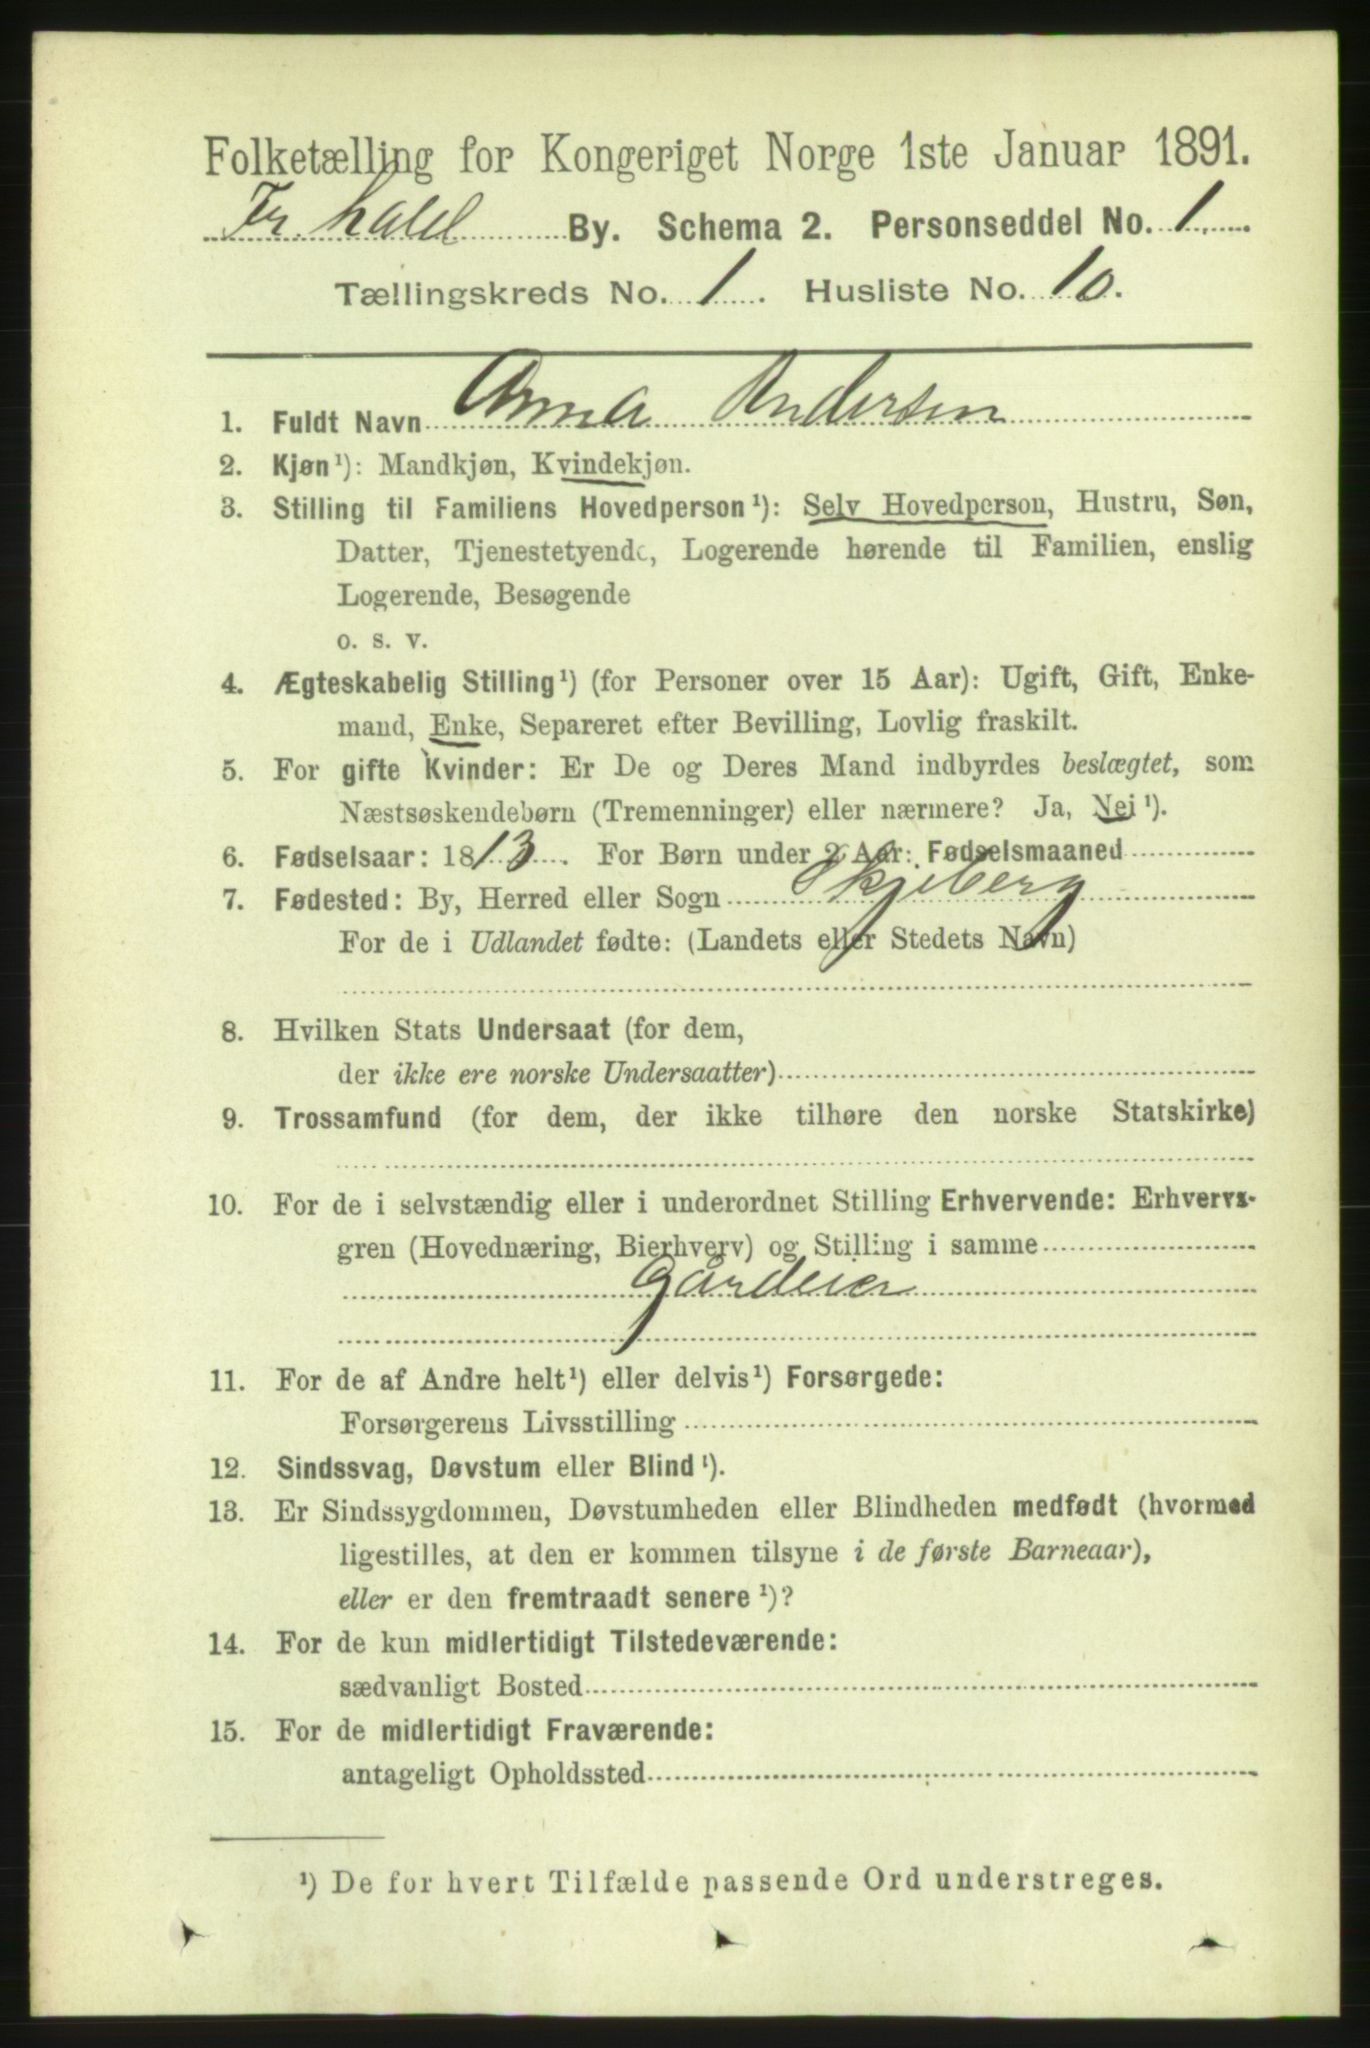 Folketælling for Kongeriget Norge 1ste Januar 1891.
Fr. hald By. Schema 2. Personseddel No. 1
Tællingskreds No. 1. Husliste No. 10.
1. Fuldt Navn Anna Andersen
2. Kjøn¹): Mandkjøn, Kvindekjøn.
3. Stilling til Familiens Hovedperson¹): Selv Hovedperson, Hustru, Søn,
Datter, Tjenestetyende, Logerende hørende til Familien, enslig
Logerende, Besøgende
o. s. v.
4. Ægteskabelig Stilling¹) (for Personer over 15 Aar): Ugift, Gift, Enke-
mand, Enke, Separeret efter Bevilling, Lovlig fraskilt.
5. For gifte Kvinder: Er De og Deres Mand indbyrdes beslægtet, som
Næstsøskendebørn (Tremenninger) eller nærmere? Ja, Nei¹).
6. Fødselsaar: 1813. For Børn under 2 Aar: Fødselsmaaned
7. Fødested: By, Herred eller Sogn Skjeberg
For de i Udlandet fødte: (Landets eller Stedets Navn)
8. Hvilken Stats Undersaat (for dem,
der ikke ere norske Undersaatter)
9. Trossamfund (for dem, der ikke tilhøre den norske Statskirke)
10. For de i selvstændig eller i underordnet Stilling Erhvervende: Erhvervs-
gren (Hovednæring, Bierhverv) og Stilling i samme
Gårdeier
11. For de af Andre helt¹) eller delvis¹) Forsørgede:
Forsørgerens Livsstilling
12. Sindssvag, Døvstum eller Blind¹).
13. Er Sindssygdommen, Døvstumheden eller Blindheden medfødt (hvormed
ligestilles, at den er kommen tilsyne i de første Barneaar),
eller er den fremtraadt senere¹)?
14. For de kun midlertidigt Tilstedeværende:
sædvanligt Bosted
15. For de midlertidigt Fraværende:
antageligt Opholdssted
¹) De for hvert Tilfælde passende Ord understreges.